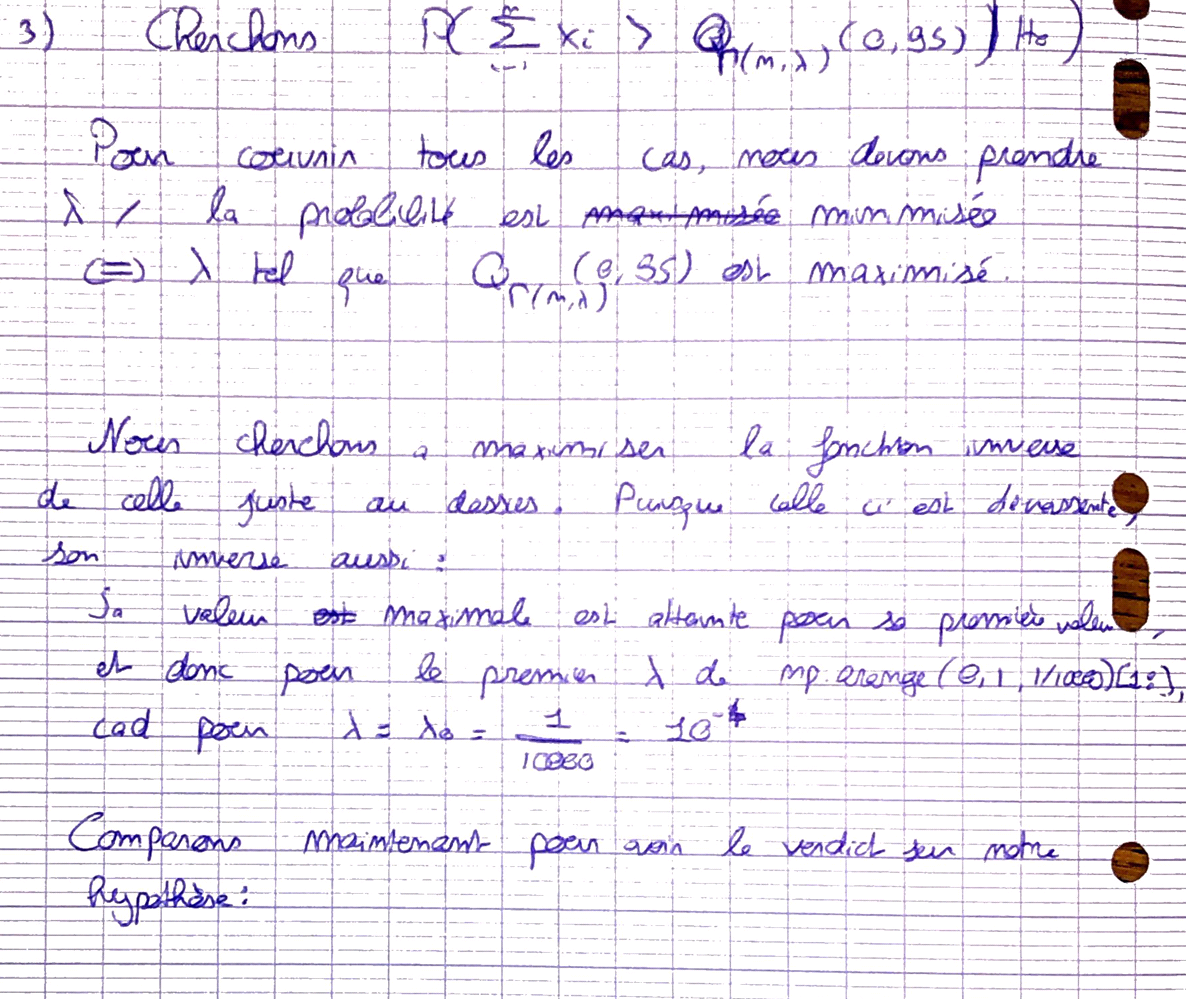 3) Cherchons P( Σ xi > Q Γ(n,λ) (0,95) | H0 )
Pour couvrir tous les cas, nous devons prendre
λ / la probabilité est maximisée minimisée
(=) λ tel que Q Γ(n,λ) (0,95) est maximisé.
Nous cherchons a maximiser la fonction inverse
de celle juste au dessus. Puisque celle ci est décroissante,
son inverse aussi :
Sa valeur est maximale est atteinte pour sa première valeur,
et donc pour le premier λ de np.arange(0,1,1/10000)[1:],
cad pour λ = λ0 = 1/10000 = 10^-4
Comparons maintenant pour avoir le verdict sur notre
hypothèse :